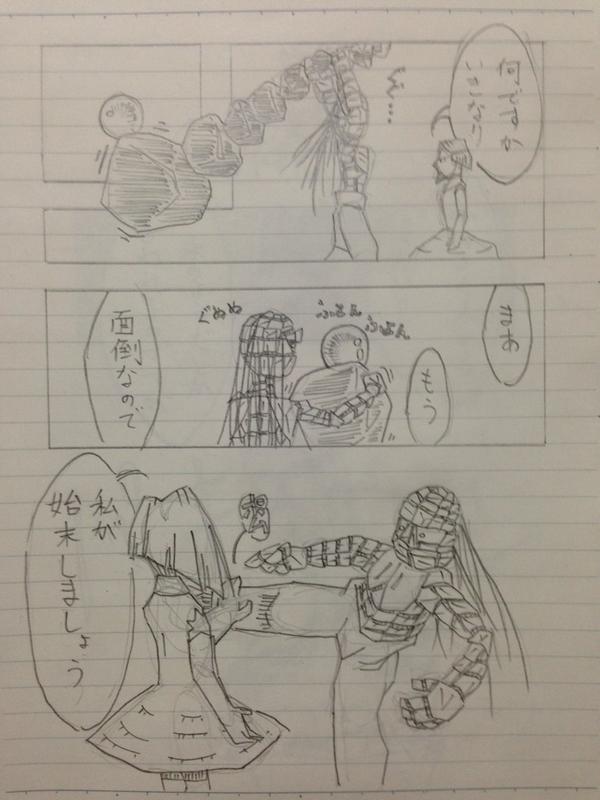 何ですか
まあ
ふよん
ふよん
ぐぬぬ
もう
面倒なので
私が
始末しましょう